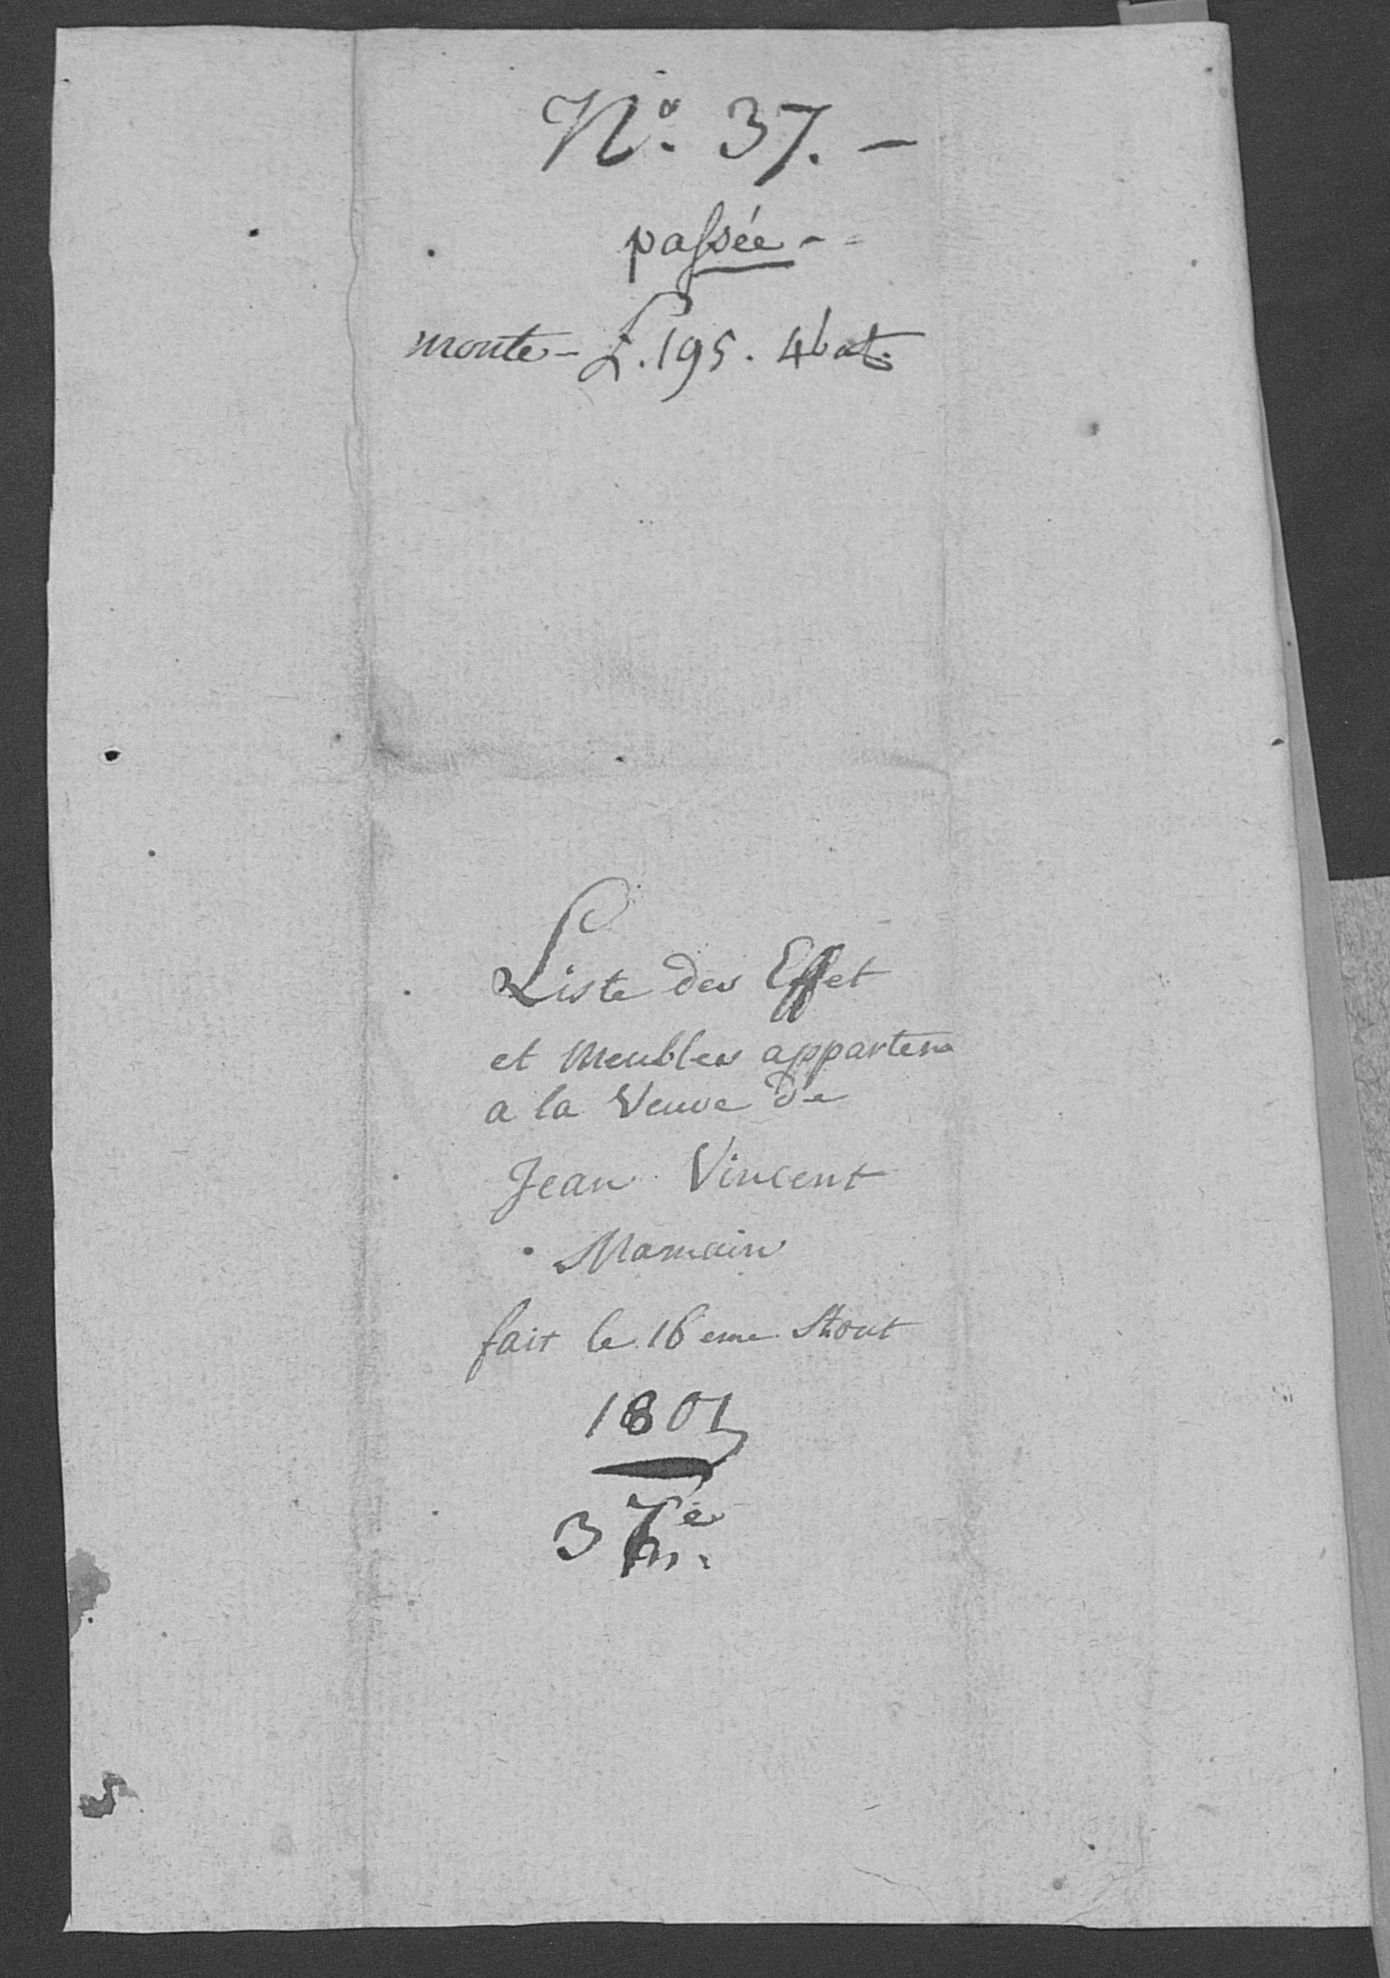 N.º 37. —
passée -
monte - L. 195. 4 bat.
Liste des Effet
et Meubles apparten
a la Veuve de
Jean Vincent
Mamain
fait le 16 eme Aout
1801
37